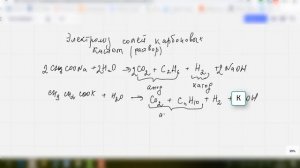 Электролиз солей карбоновых
кислот (раствор)
2CH₃COONa + 2H₂O → 2CO₂ + C₂H₆ + H₂ + 2NaOH
анод катод
CH₃CH₂COOK + H₂O → CO₂ + C₄H₁₀ + H₂ + KOH